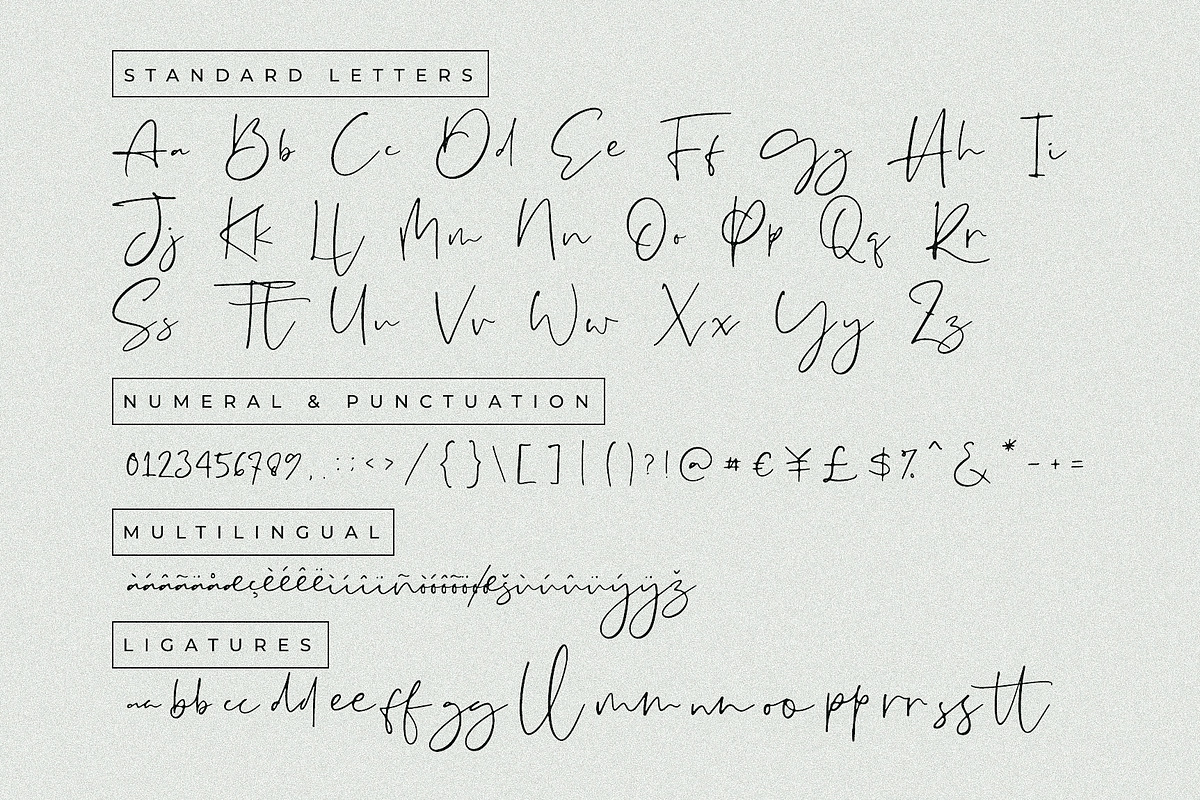 STANDARD LETTERS
Aa Bb Cc Dd Ee Ff Gg Hh Ii
Jj Kk Ll Mm Nn Oo Pp Qq Rr
Ss Tt Uu Vv Ww Xx Yy Zz
NUMERAL & PUNCTUATION
0123456789,. :; <> / { } \ [ ] | ( ) ? ! @ # € ¥ £ $ % ^ & * - + =
MULTILINGUAL
àáâãäåæçèéêëìíîïñòóôõöøœšùúûüýÿž
LIGATURES
aa bb cc dd ee ff gg ll mm nn oo pp rr ss tt